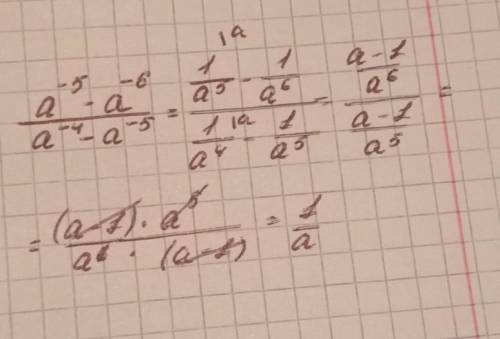 \frac{a^{-5} - a^{-6}}{a^{-4} - a^{-5}} = \frac{\frac{1}{a^5}^{\backslash a} - \frac{1}{a^6}}{\frac{1}{a^4}^{\backslash a} - \frac{1}{a^5}} = \frac{\frac{a-1}{a^6}}{\frac{a-1}{a^5}} =
= \frac{(a-1) \cdot a^5}{a^6 \cdot (a-1)} = \frac{1}{a}